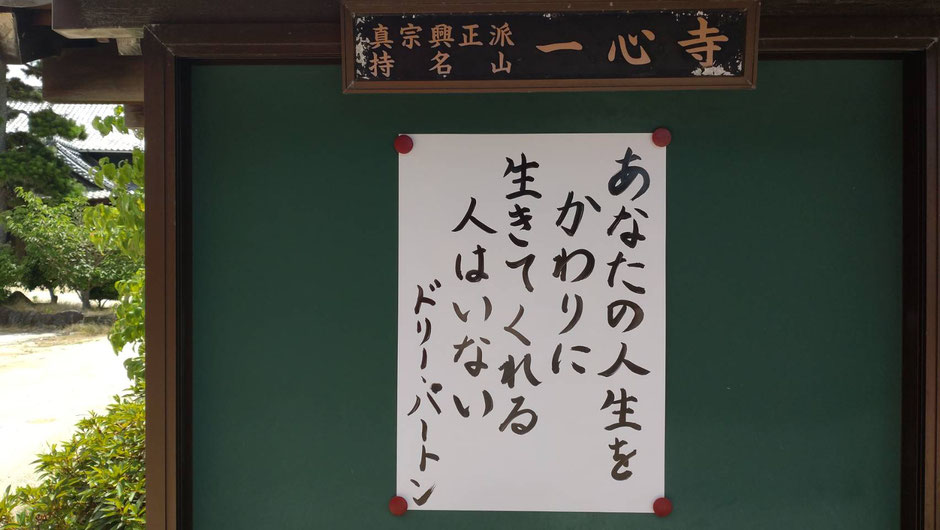 真宗興正派
持名山
一心寺
あなたの人生を
かわりに
生きてくれる
人はいない
ドリー・パートン